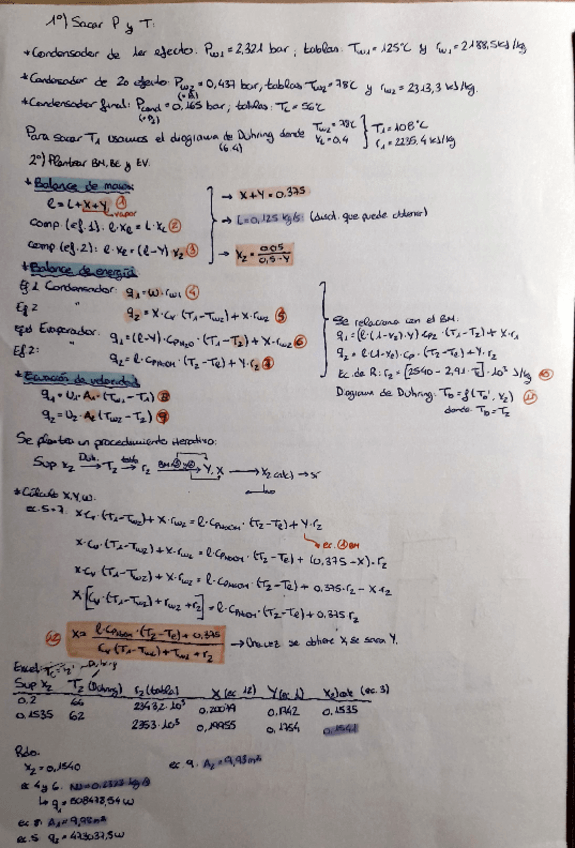 1º) Sacar P y T:
* Condensador de 1er efecto: Pw1 = 2,321 bar; tablas: Tw1 = 125ºC y rw1 = 2188,5 kJ/kg
* Condensador de 2o efecto: Pw2 = 0,437 bar, tablas Tw2 = 78ºC y rw2 = 2313,3 kJ/kg.
* Condensador final: Pcond = 0,165 bar; tablas: Tc = 56ºC
Para sacar T1 usamos el diagrama de Duhring donde Tw2 = 78ºC
xL = 0.4
T1 = 108ºC
r1 = 2235.4 kJ/kg
(6.4)
2º) Plantear BM, BE y EV.
* Balance de masa:
l = L + X + Y ①
vapor
comp (ef. 1): l·xl = L·xL ②
comp (ef. 2): l·xl = (l-Y) x2 ③
→ X+Y = 0.375
→ L = 0,125 kg/s (disol. que puede obtener)
→ x2 = 0,05 / 0,5-Y
* Balance de energía
Ef. 1 Condensador: q1 = W·rw1 ④
Ef. 2 q2 = X·Cv·(T1-Tw2) + X·rw2 ⑤
Evaporador: q1 = (l-Y)·CpH2O·(T1-T2) + X·rw2 ⑥
Ef. 2: q2 = l·CpNaOH·(T2-Tl) + Y·r2 ⑦
Se relaciona con el BM:
q2 = l·(1-xl)·Cp·(T2-Tl) + Y·r2
Ec. de R: r2 = [2540 - 2,91·T2]·10³ J/kg
Diagrama de Duhring: Tb = f(Tb', x2)
donde Tb = T2
* Ecuación de velocidad
q1 = U1·A1·(Tw1-T1) ⑧
q2 = U2·A2(Tw2-T2) ⑨
Se plantea un procedimiento iterativo:
Sup x2 → T2 → r2 → Y, X → x2(calc) → si
* Cálculo X, Y, W.
ec. 5=7. X·Cv·(T1-Tw2) + X·rw2 = l·CpNaOH·(T2-Tl) + Y·r2
ec. ① BM
X·Cv·(T1-Tw2) + X·rw2 = l·CpNaOH·(T2-Tl) + (0,375 - X)·r2
X·Cv(T1-Tw2) + X·rw2 = l·CpNaOH·(T2-Tl) + 0.375·r2 - X·r2
X[Cv·(T1-Tw2) + rw2 + r2] = l·CpNaOH·(T2-Tl) + 0.375 r2
X = l·CpNaOH·(T2-Tl) + 0,375 / Cv(T1-Tw2) + rw2 + r2 → Una vez se obtiene X, se saca Y.
Excel:
Sup x2 T2 (Duhring) r2 (tabla) X (ec 12) Y (ec 1) x2 calc (ec. 3)
0.2 66 2343,2·10³ 0,20079 0.1742 0.1535
0.1535 62 2353·10³ 0,19955 0,1754 0,1541
Rdo.
x2 = 0,1540
ec. 9. A2 = 9,93 m²
ec 4 y 6.
↳ q1 = 508478,54 W
ec. 8. A1 = 9,93 m²
ec. 5 q2 = 473037,5 W